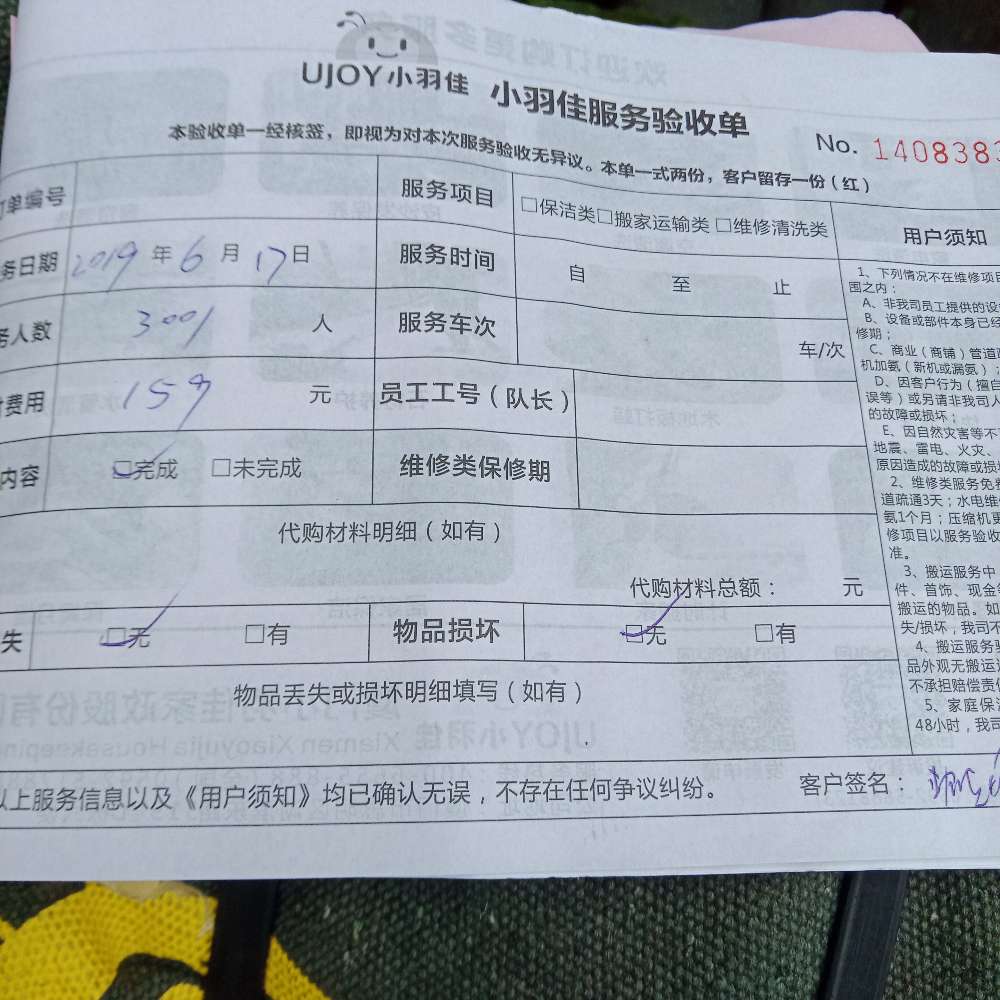 UJOY小羽佳 小羽佳服务验收单
No. 1408383
本验收单一经核签，即视为对本次服务验收无异议。本单一式两份，客户留存一份（红）
单编号 服务项目 □保洁类□搬家运输类□维修清洗类
务日期 2019年6月17日 服务时间 自 至 止
务人数 3001 人 服务车次 车/次
费用 159 元 员工工号（队长）
内容 □完成 □未完成 维修类保修期
代购材料明细（如有）
代购材料总额： 元
失 □无 □有 物品损坏 □无 □有
物品丢失或损坏明细填写（如有）
以上服务信息以及《用户须知》均已确认无误，不存在任何争议纠纷。 客户签名：
用户须知
1、下列情况不在维修项目
围之内：
A、非我司员工提供的设
B、设备或部件本身已经
修期；
C、商业（商铺）管道
机加氨（新机或漏氨）；
D、因客户行为（擅自
误等）或另请非我司人
的故障或损坏；
E、因自然灾害等不
地震、雷电、火灾、
原因造成的故障或损坏
2、维修类服务免费
道疏通3天；水电维
氨1个月；压缩机更
修项目以服务验收
准。
3、搬运服务中
件、首饰、现金等
搬运的物品。如
失/损坏，我司不
4、搬运服务
品外观无搬运
不承担赔偿责任
5、家庭保洁
48小时，我司